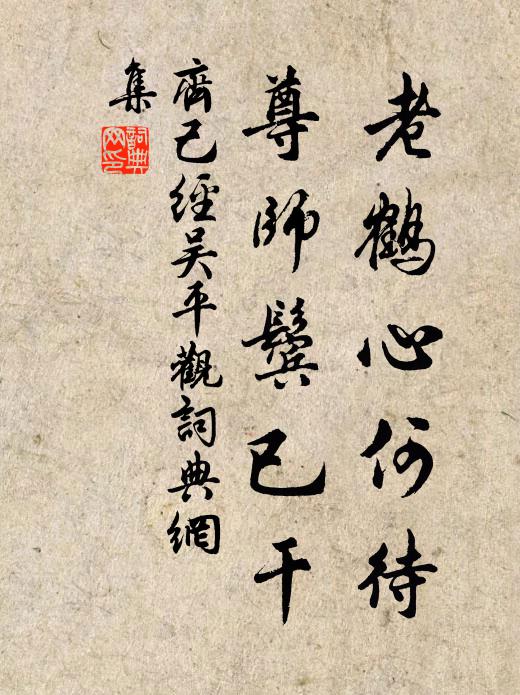 老鶴心何待
尊師鬢已干
齊己經吴平觀詞典網
集
詞典
网印